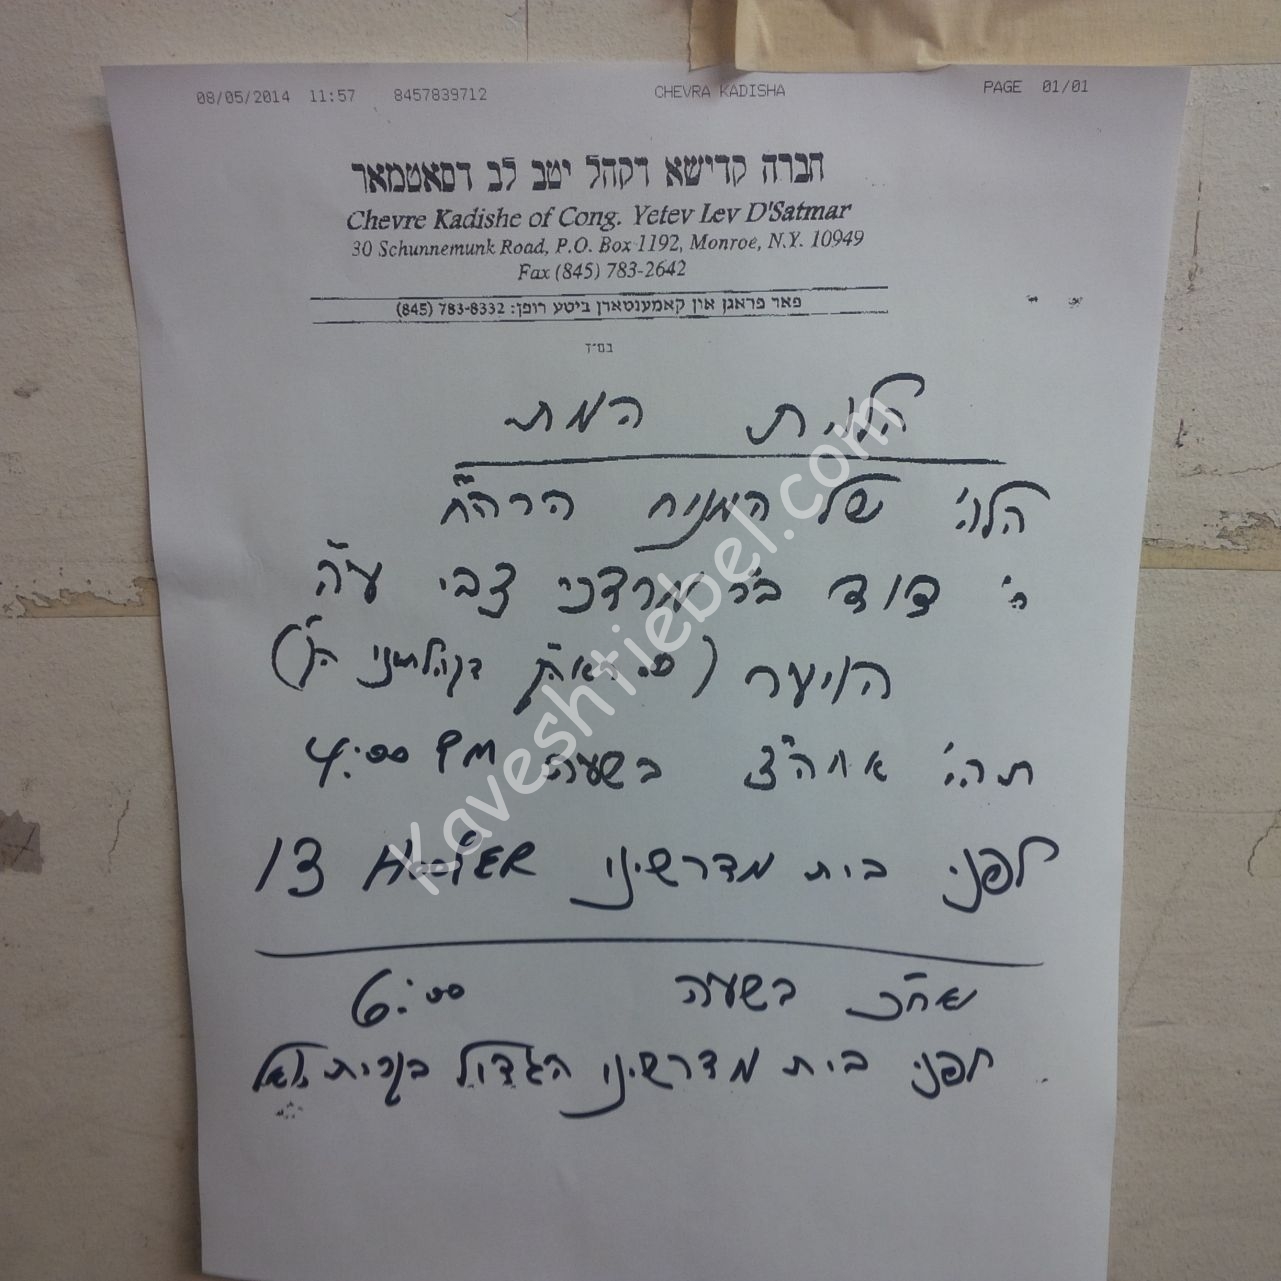 08/05/2014 11:57 8457839712 CHEVRA KADISHA PAGE 01/01
חברה קדישא דקהל יטב לב דסאטמאר
Chevre Kadishe of Cong. Yetev Lev D'Satmar
30 Schunnemunk Road, P.O. Box 1192, Monroe, N.Y. 10949
Fax (845) 783-2642
פאר פראגן אין קאמענטארן ביטע רופן: 783-8332 (845)
בס״ד
הלוית המת
הלוי' של המנוח הרה״ח
ר' דוד ב״ר מרדכי צבי ע״ה
היה' אחה״צ בשעה 4:00 PM
לפני בית מדרשינו 13 HOOPER
ואח״כ בשעה 6:00
לפני בית מדרשינו הגדול בקרית יואל
kaveshtiebel.com